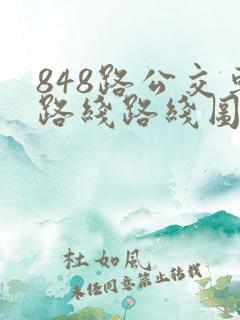 848路公交车
路线路线图
杜如風
未经同意禁止转载